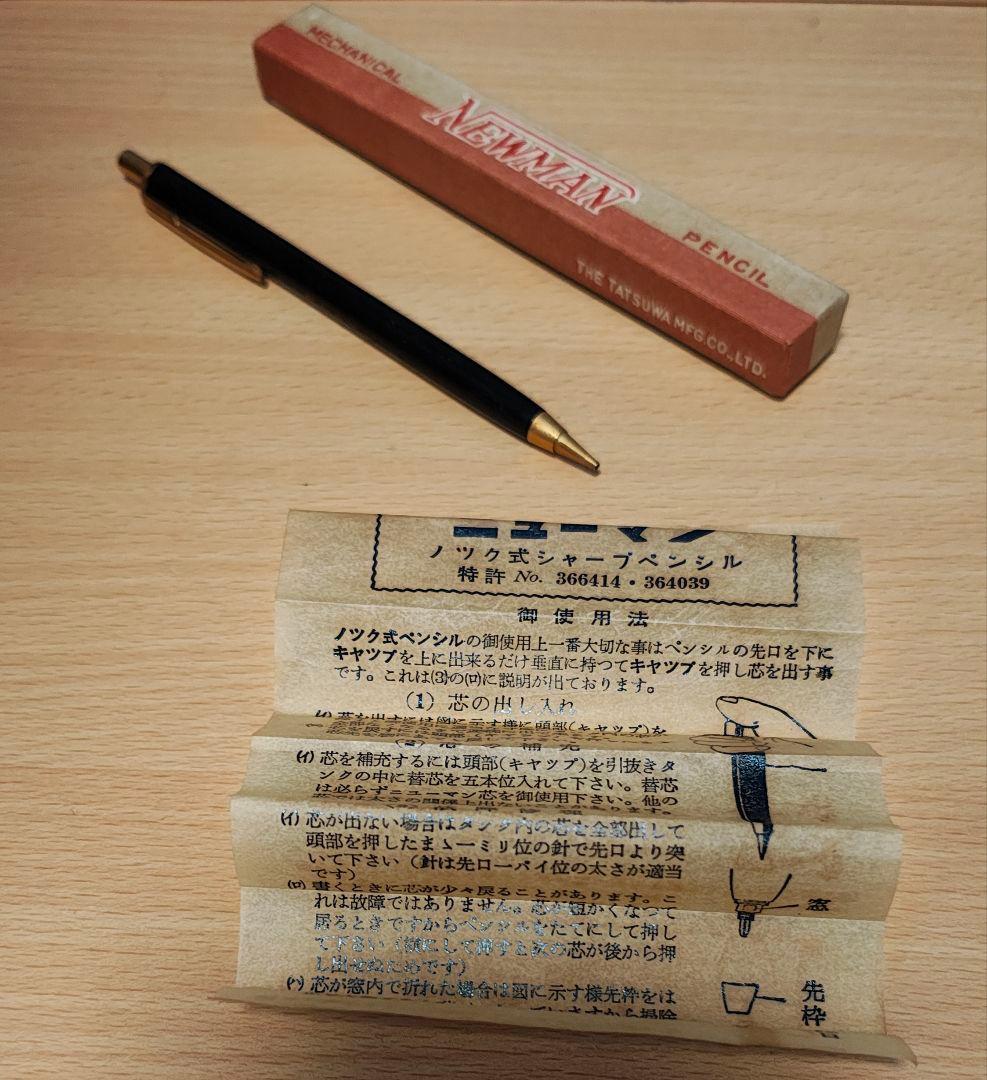 MECHANICAL
NEWMAN
PENCIL
THE TATSUWA MFG.CO.,LTD.
ニューマン
ノツク式シャープペンシル
特許 No. 366414・364039
御使用法
ノツク式ペンシルの御使用上一番大切な事はペンシルの先口を下に
キヤツプを上に出来るだけ垂直に持つてキヤツプを押し芯を出す事
です。これは(3)の(ロ)に説明が出ております。
(1) 芯の出し入れ
(イ) 芯を出すには図に示す様に頭部(キャップ)を
(2) 芯の補充
(イ) 芯を補充するには頭部(キャップ)を引抜きタ
ンクの中に替芯を五本位入れて下さい。替芯
は必らずニューマン芯を御使用下さい。他の
(イ) 芯が出ない場合はタンク内の芯を全部出して
頭部を押したまゝ一ミリ位の針で先口より突
いて下さい(針は先ローパイ位の太さが適当
です)
(ロ) 書くときに芯が少々戻ることがあります。こ
れは故障ではありません。芯が短かくなつて
居るときですからペンシルをたてにして押し
て下さい(横にして押すと次の芯が後から押
し出せぬためです)
(ハ) 芯が窓内で折れた場合は図に示す様先枠をは
窓
先枠